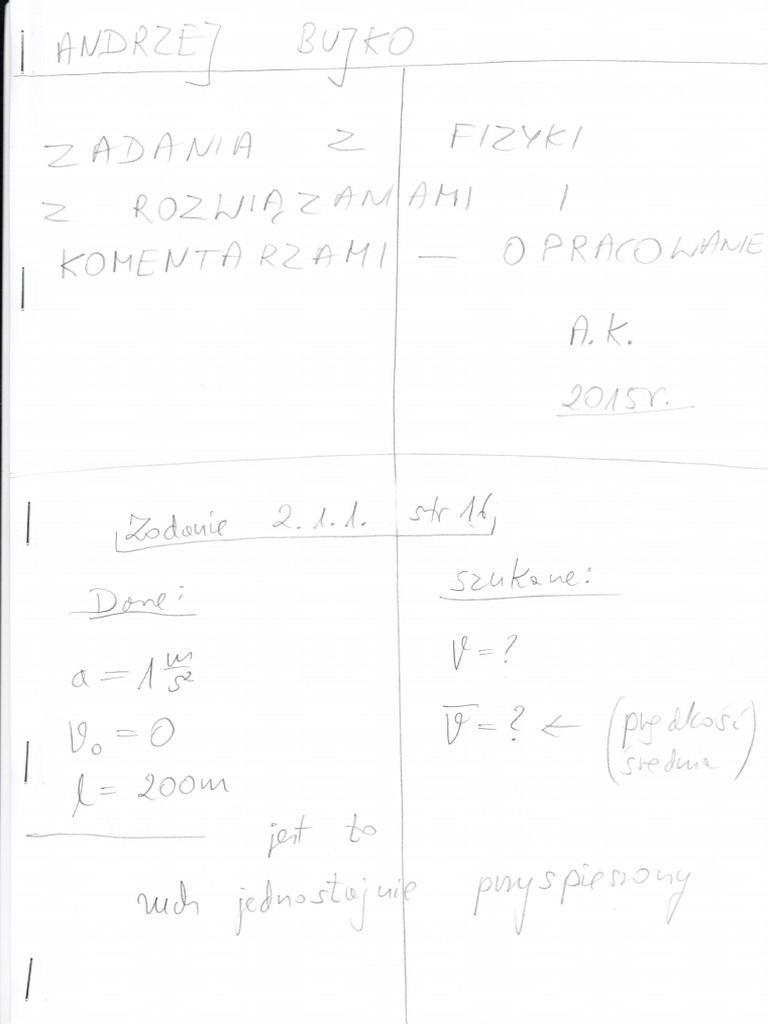 ANDRZEJ BUJKO
ZADANIA Z FIZYKI
Z ROZWIĄZANIAMI I
KOMENTARZAMI — OPRACOWANIE
A.K.
2015r.
Zadanie 2.1.1. str 16
Dane:
a = 1 m/s²
v₀ = 0
l = 200m
szukane:
v = ?
v̅ = ? ← (prędkość
średnia)
jest to
ruch jednostajnie przyspieszony